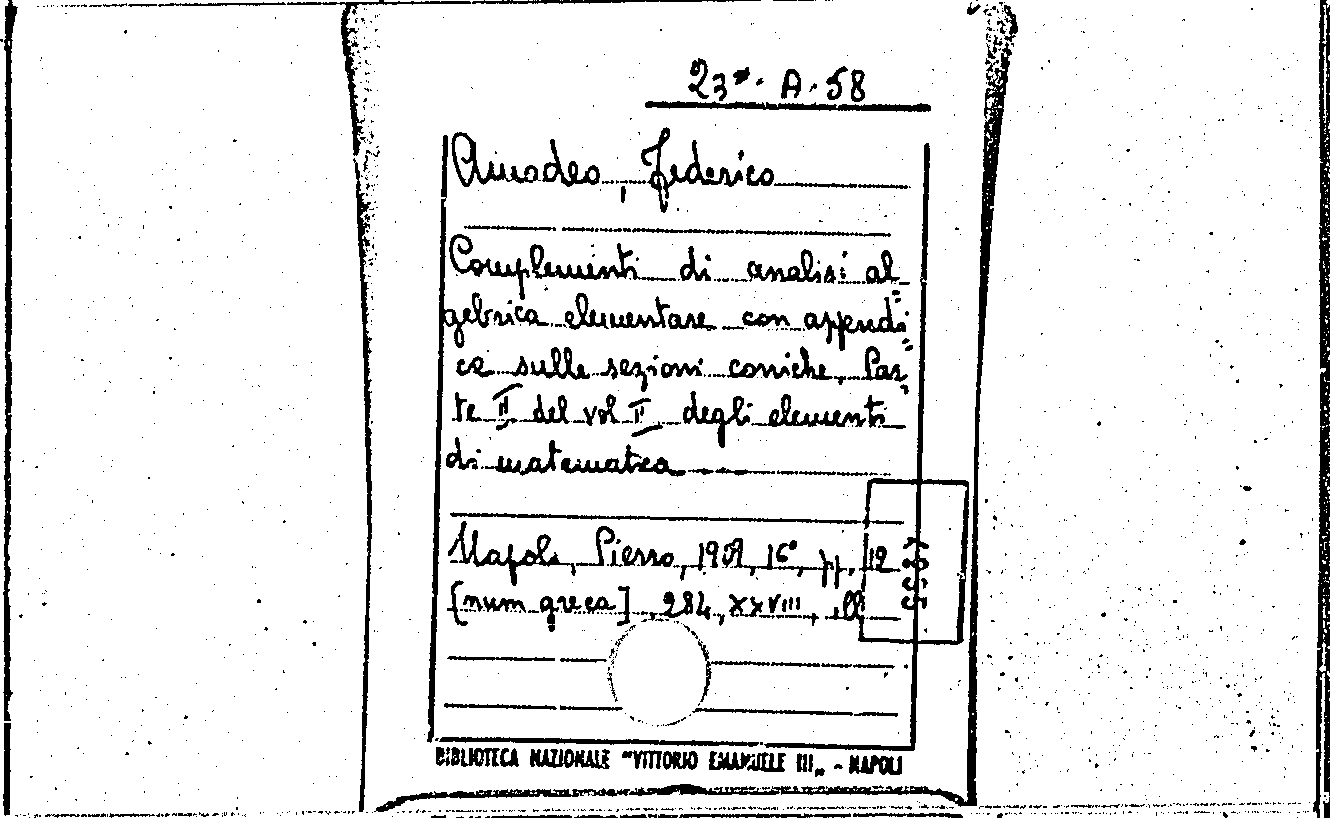 23*. A. 58
Amodeo, Federico
Complementi di analisi al=
gebrica elementare con appendi=
ce sulle sezioni coniche. Par=
te II del vol II degli elementi
di matematica
Napoli, Pierro, 1909, 16°, pp. 12
[num greca], 284, XXVIII, ill
BIBLIOTECA NAZIONALE "VITTORIO EMANUELE III„ - NAPOLI